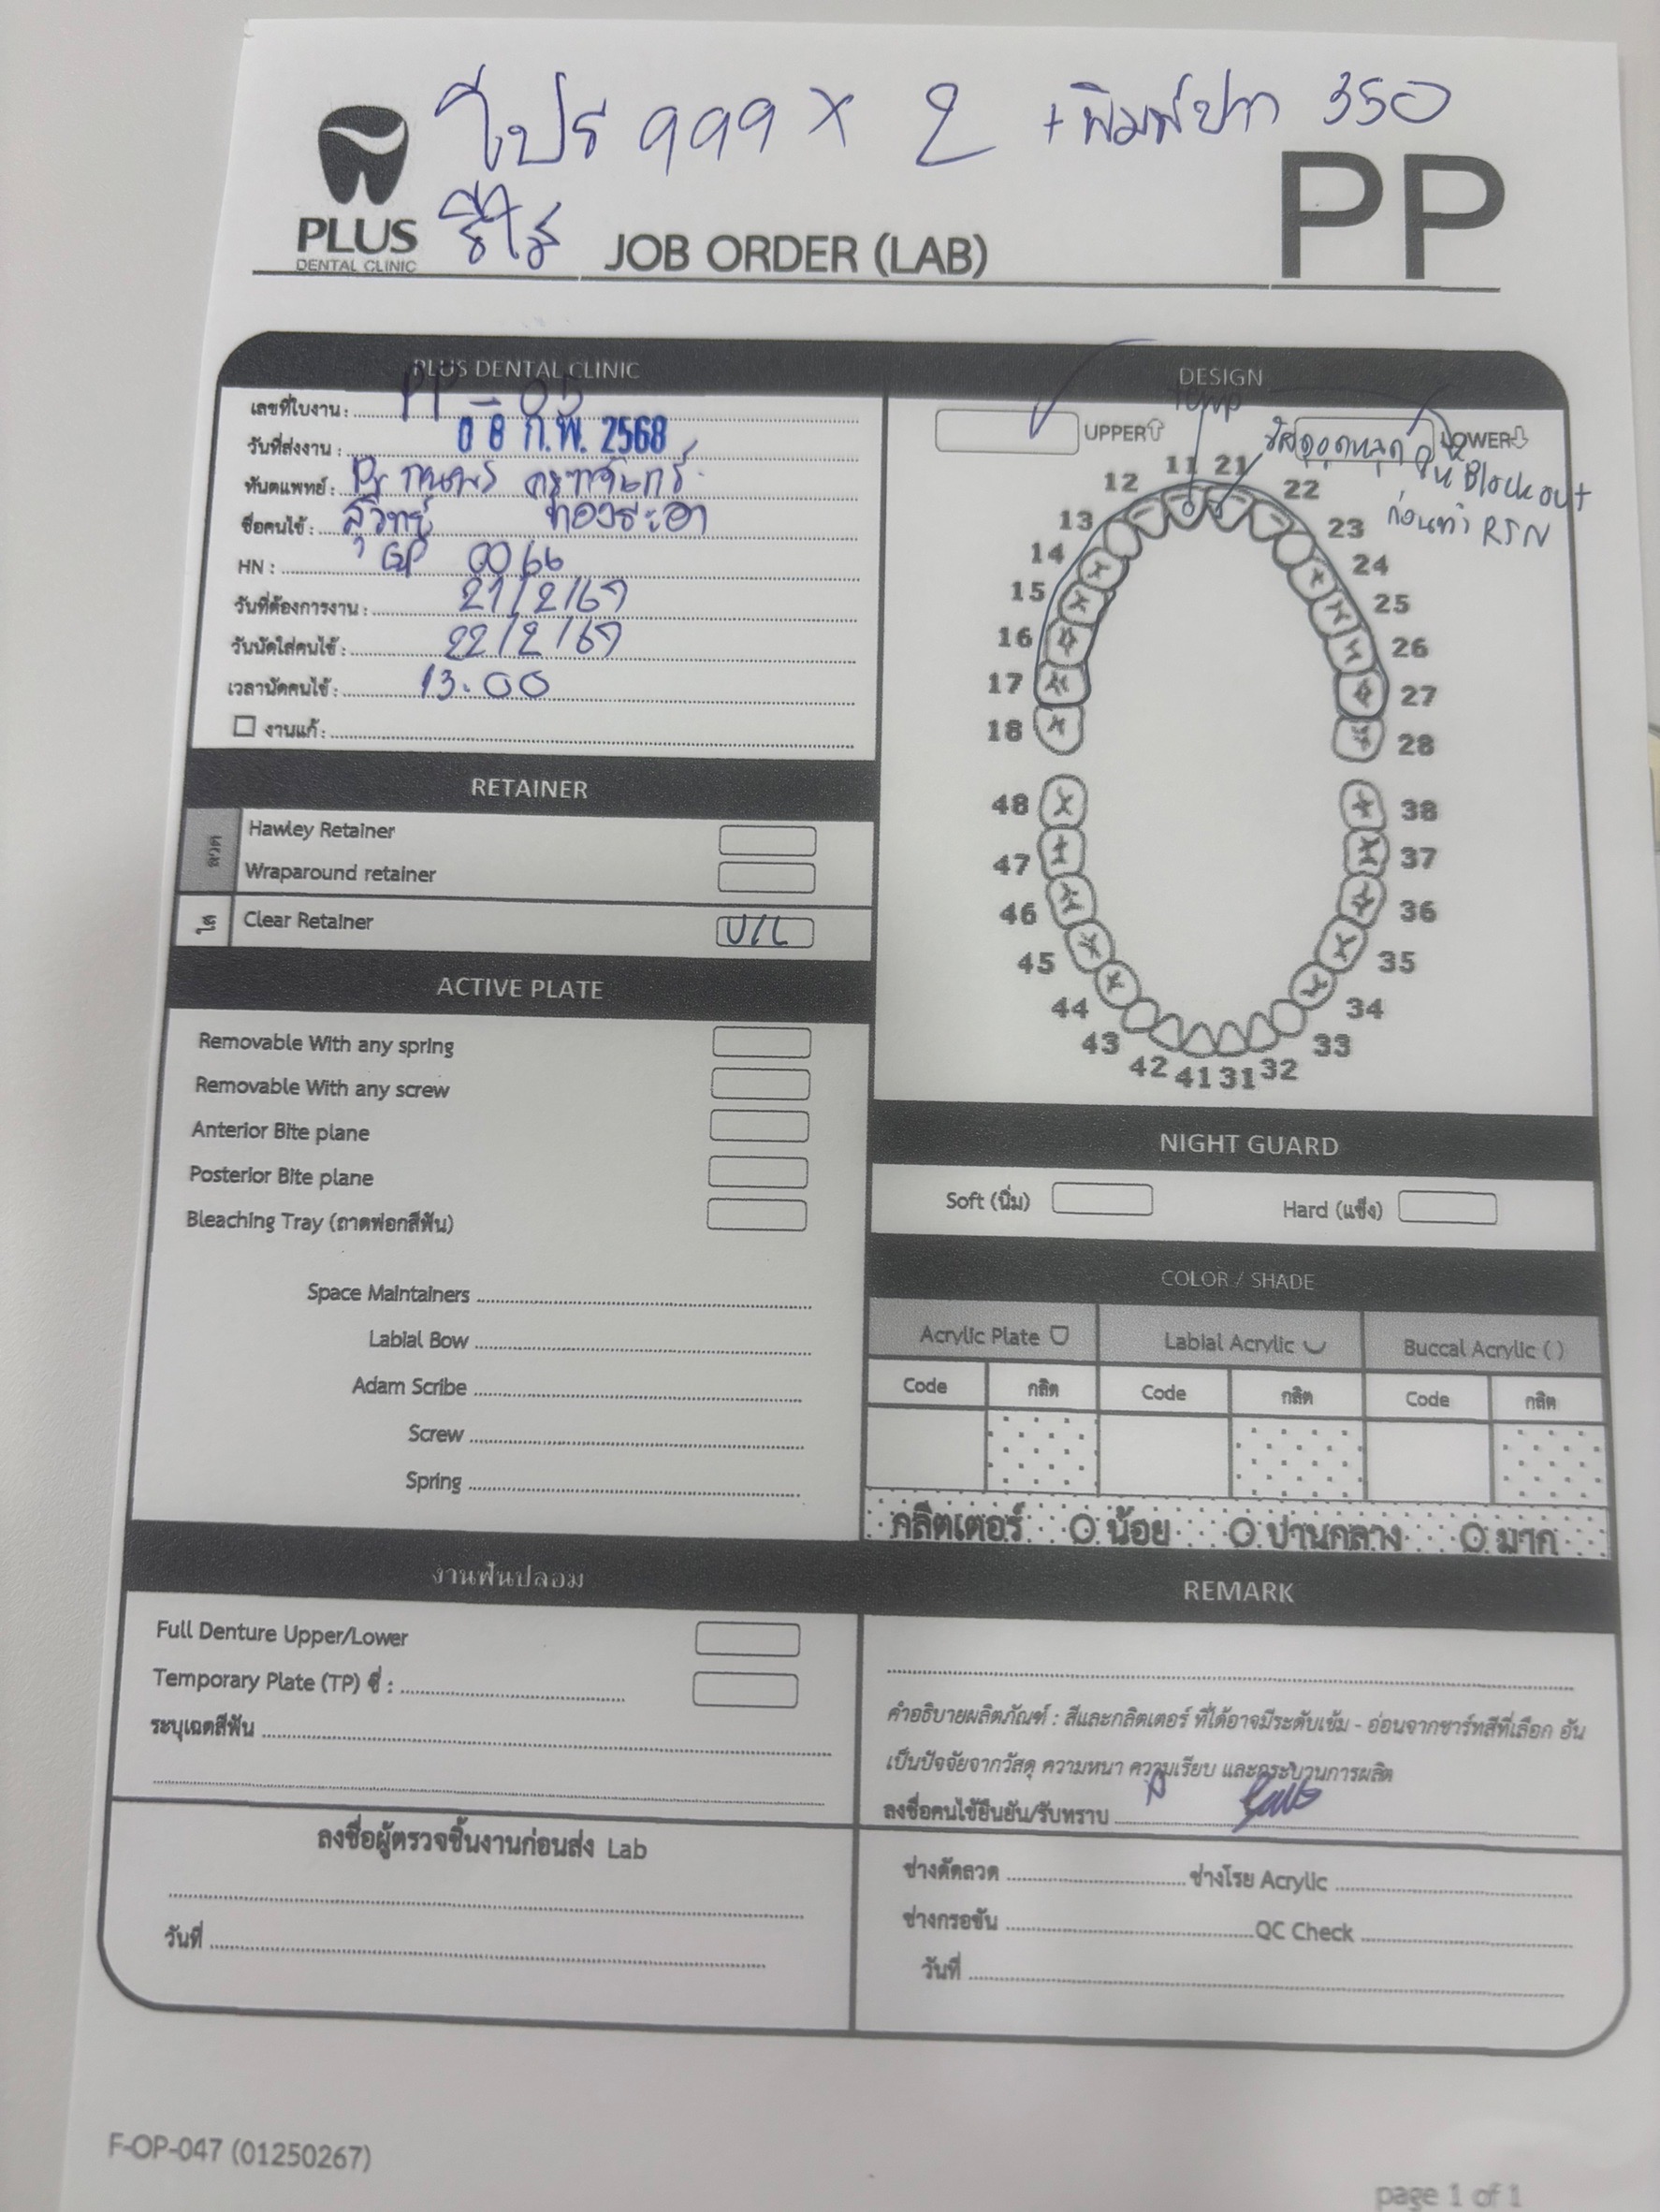 โปร 999 X 2 + พิมพ์ปาก 350
รีใส
PLUS
DENTAL CLINIC
JOB ORDER (LAB)
PP
PLUS DENTAL CLINIC
เลขที่ใบงาน : PP - 05
วันที่ส่งงาน : 08 ก.พ. 2568
ทันตแพทย์ : Dr
ชื่อคนไข้ : สุวิทย์
HN : GP 0066
วันที่ต้องการงาน : 21/2/67
วันนัดใส่คนไข้ : 22/2/67
เวลานัดคนไข้ : 13.00
งานแก้ :
RETAINER
ลวด
Hawley Retainer
Wraparound retainer
ใส
Clear Retainer U/L
ACTIVE PLATE
Removable With any spring
Removable With any screw
Anterior Bite plane
Posterior Bite plane
Bleaching Tray (ถาดฟอกสีฟัน)
Space Maintainers
Labial Bow
Adam Scribe
Screw
Spring
งานฟันปลอม
Full Denture Upper/Lower
Temporary Plate (TP) ซี่ :
ระบุเฉดสีฟัน
ลงชื่อผู้ตรวจชิ้นงานก่อนส่ง Lab
วันที่
DESIGN
Temp
UPPER
LOWER
วัสดุอุดหลุด
Block out
ก่อนทำ RTN
11 21
12 22
13 23
14 24
15 25
16 26
17 27
18 28
48 38
47 37
46 36
45 35
44 34
43 33
42 41 31 32
NIGHT GUARD
Soft (นิ่ม) Hard (แข็ง)
COLOR / SHADE
Acrylic Plate Labial Acrylic Buccal Acrylic ( )
Code กลิต Code กลิต Code กลิต
กลิตเตอร์ น้อย ปานกลาง มาก
REMARK
คำอธิบายผลิตภัณฑ์ : สีและกลิตเตอร์ ที่ได้อาจมีระดับเข้ม - อ่อนจากชาร์ทสีที่เลือก อัน
เป็นปัจจัยจากวัสดุ ความหนา ความเรียบ และกระบวนการผลิต
ลงชื่อคนไข้ยืนยัน/รับทราบ
ช่างดัดลวด ช่างโรย Acrylic
ช่างกรอขัน QC Check
วันที่
F-OP-047 (01250267)
page 1 of 1